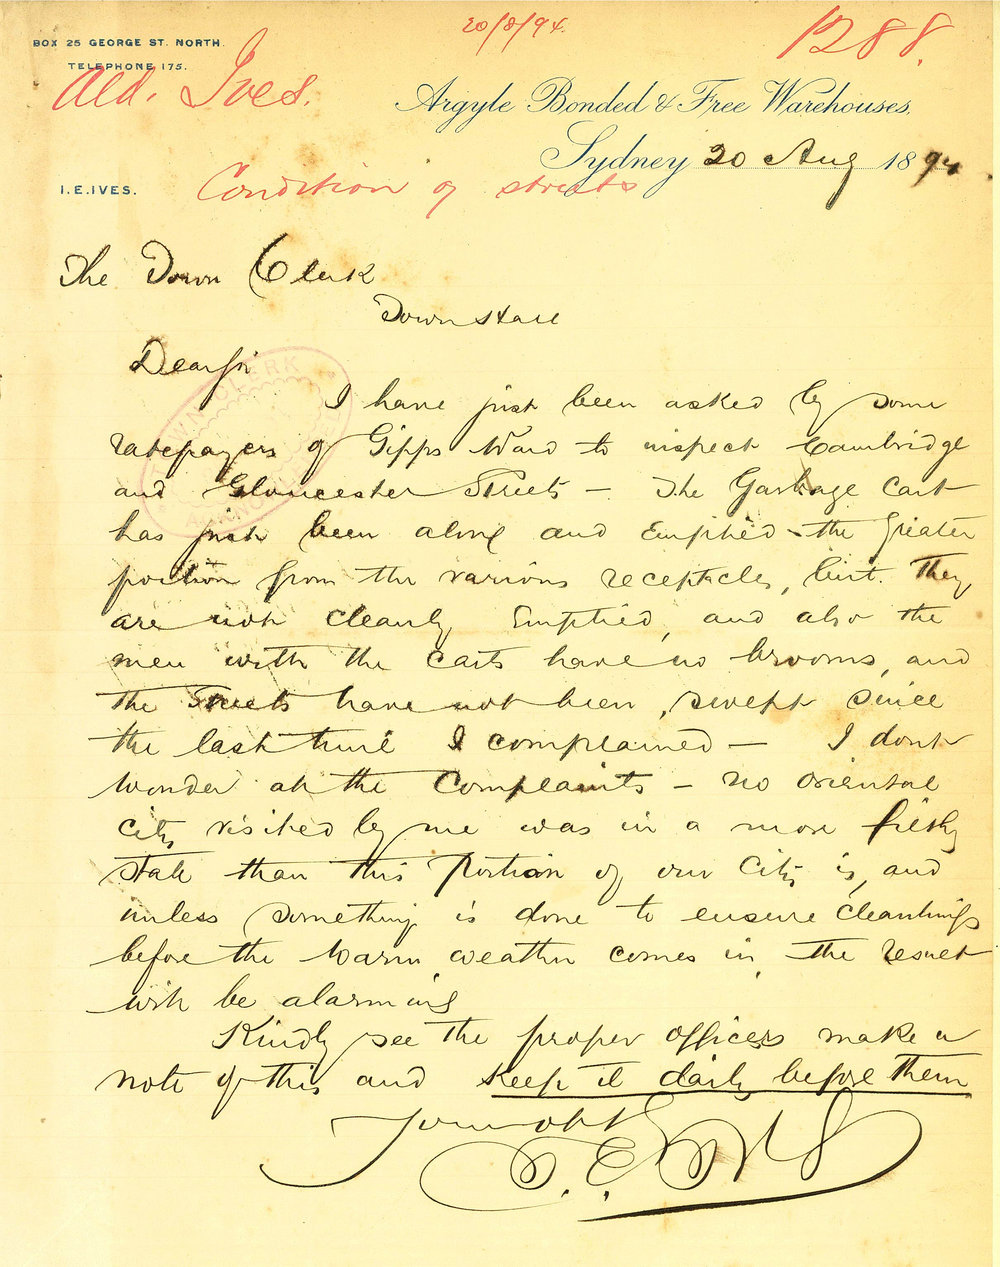 20/8/94.
1288.
BOX 25 GEORGE ST. NORTH.
TELEPHONE 175.
Ald. Ives.
Argyle Bonded & Free Warehouses,
Sydney 20 Aug 1894
I.E.IVES.
Condition of streets
The Town Clerk
Town Hall
Dear Sir
TOWN CLERK
I have just been asked by some
ratepayers of Gipps Ward to inspect Cambridge
and Gloucester Streets – The Garbage Cart
has just been along and Emptied the Greater
portion from the various receptacles, but they
are not cleanly Emptied, and also the
men with the carts have no brooms, and
the Streets have not been swept since
the last time I complained – I dont
wonder at the Complaints – no oriental
city visited by me was in a more filthy
state than this Portion of our City is, and
unless something is done to ensure cleanliness
before the warm weather comes in, the result
will be alarming
Kindly see the proper officers make a
note of this and keep it daily before them